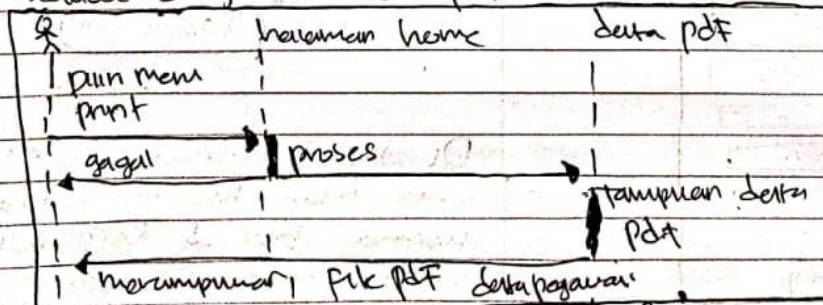 halaman home
data pdf
pilih menu
print
gagal
proses
tampilan data
pdf
menampilkan file pdf data pegawai